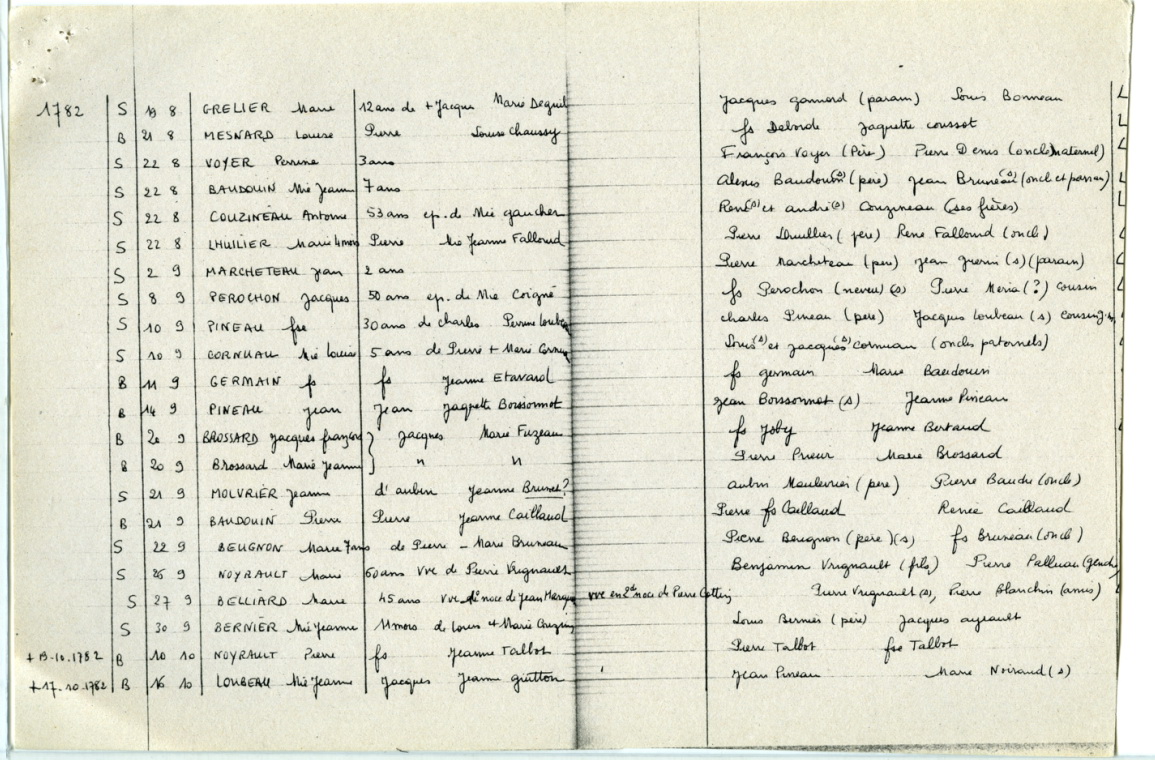 1782 S 19 8 GRELIER Marie 12 ans de + Jacques Marie Deguil Jacques gamord (parain) Louis Bonneau L
B 21 8 MESNARD Louise Pierre Louise Chaussy fs Delorde Jaquette coussot L
S 22 8 VOYER Perrine 3 ans François Voyer (Père) Pierre Denis (oncle maternel) L
S 22 8 BAUDOUIN Mie Jeanne 7 ans Alexis Baudouin (s) (pere) Jean Bruneau (s) (oncl et parrain) L
S 22 8 COUZINEAU Antoine 53 ans ep. de Mie gaucher René (s) et andré (s) Couzineau (ses frères) L
S 22 8 LHUILIER Marie 4 mois Pierre Mie Jeanne Falloud Pierre Lhuillier (pere) René Falloud (oncl)
S 2 9 MARCHETEAU Jean 2 ans Pierre Marcheteau (pere) Jean guerin (s) (parain)
S 8 9 PEROCHON Jacques 50 ans ep. de Mie Coigné fs Perochon (neveu) (s) Pierre Meria (?) cousin
S 10 9 PINEAU fse 30 ans de charles Perrine Loubeau charles Pineau (pere) Jacques Loubeau (s) cousin
S 10 9 CORNUAU Mie Louise 5 ans de Pierre + Marie Cornu Louis (s) et Jacques (s) cornuau (oncles paternels)
B 11 9 GERMAIN fs fs Jeanne Etavard fs germain Marie Baudouin
B 14 9 PINEAU Jean Jean Jaquette Boissonnot Jean Boissonnot (s) Jeanne Pineau
B 20 9 BROSSARD Jacques françois } Jacques Marie Fuzeau fs Joby Jeanne Bertaud
B 20 9 Brossard Marie Jeanne } " " Pierre Prieur Marie Brossard
S 21 9 MOLVRIER Jeanne d'aubin Jeanne Brunet? aubin Maulevrier (pere) Pierre Baudu (oncl)
B 21 9 BAUDOUIN Pierre Pierre Jeanne Caillaud Pierre fs Caillaud Renée Caillaud
S 22 9 BEUGNON Marie 7 ans de Pierre - Marie Bruneau Pierre Beugnon (pere) (s) fs Bruneau (oncl)
S 26 9 NOYRAULT Marie 60 ans Vve de Pierre Vrignault Benjamin Vrignault (fils) Pierre Palluau (gendr
S 27 9 BELLIARD Marie 45 ans Vve 1e noce de Jean vve en 2d noce de Pierre Cottin Pierre Vrignault (s), Pierre Blanchin (amis)
S 30 9 BERNIER Mie Jeanne 11 mois de Louis + Marie Louis Bernier (pere) Jacques ayrault
+ 13.10.1782 B 10 10 NOYRAULT Pierre fs Jeanne Talbot Pierre Talbot fse Talbot
+ 17.10.1782 B 16 10 LOUBEAU Mie Jeanne Jacques Jeanne guitton Jean Pineau Marie Noiraud (s)